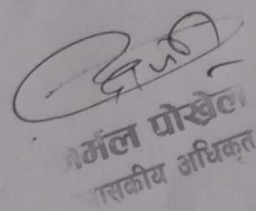 र्मल पोखेल
ासकीय अधिकृत